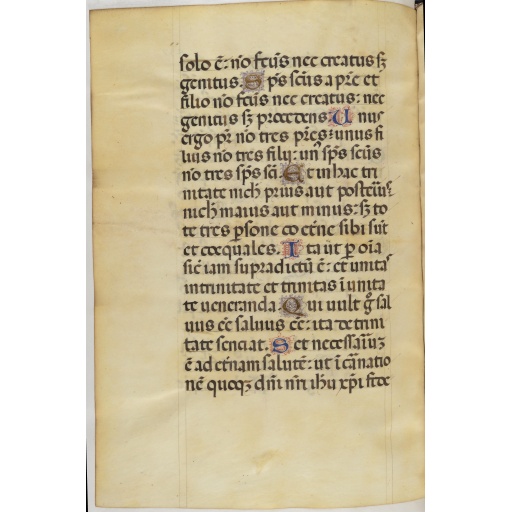 solo ē: nō fcūs nec creatus sꝫ
genitus. S pūs scūs a prē et
filio nō fcūs nec creatus: nec
genitus sꝫ procedens. U nus
ergo pr̄ nō tres pr̄es: unus fi
lius nō tres filij: un᷒ spūs scūs
no tres spūs scī. Et in hac tri
nitate nich̄ prius aut posteri᷒:
nich̄ maius aut minus: sꝫ to
te tres ꝑsone coetne sibi sūt
et coequales. I ta ut ꝑ oīa
sic̄ iam supradictū ē: et unitas
in trinitate et trinitas ī unita
te ueneranda. Q ui uult gͦ sal
uus eē saluus eē: ita de trini
tate senciat. S et necessariūꝫ
ē ad etnam salutē: ut ī carnatio
nē quoqꝫ dn̄i nr̄i ih̄u xp̄i fide